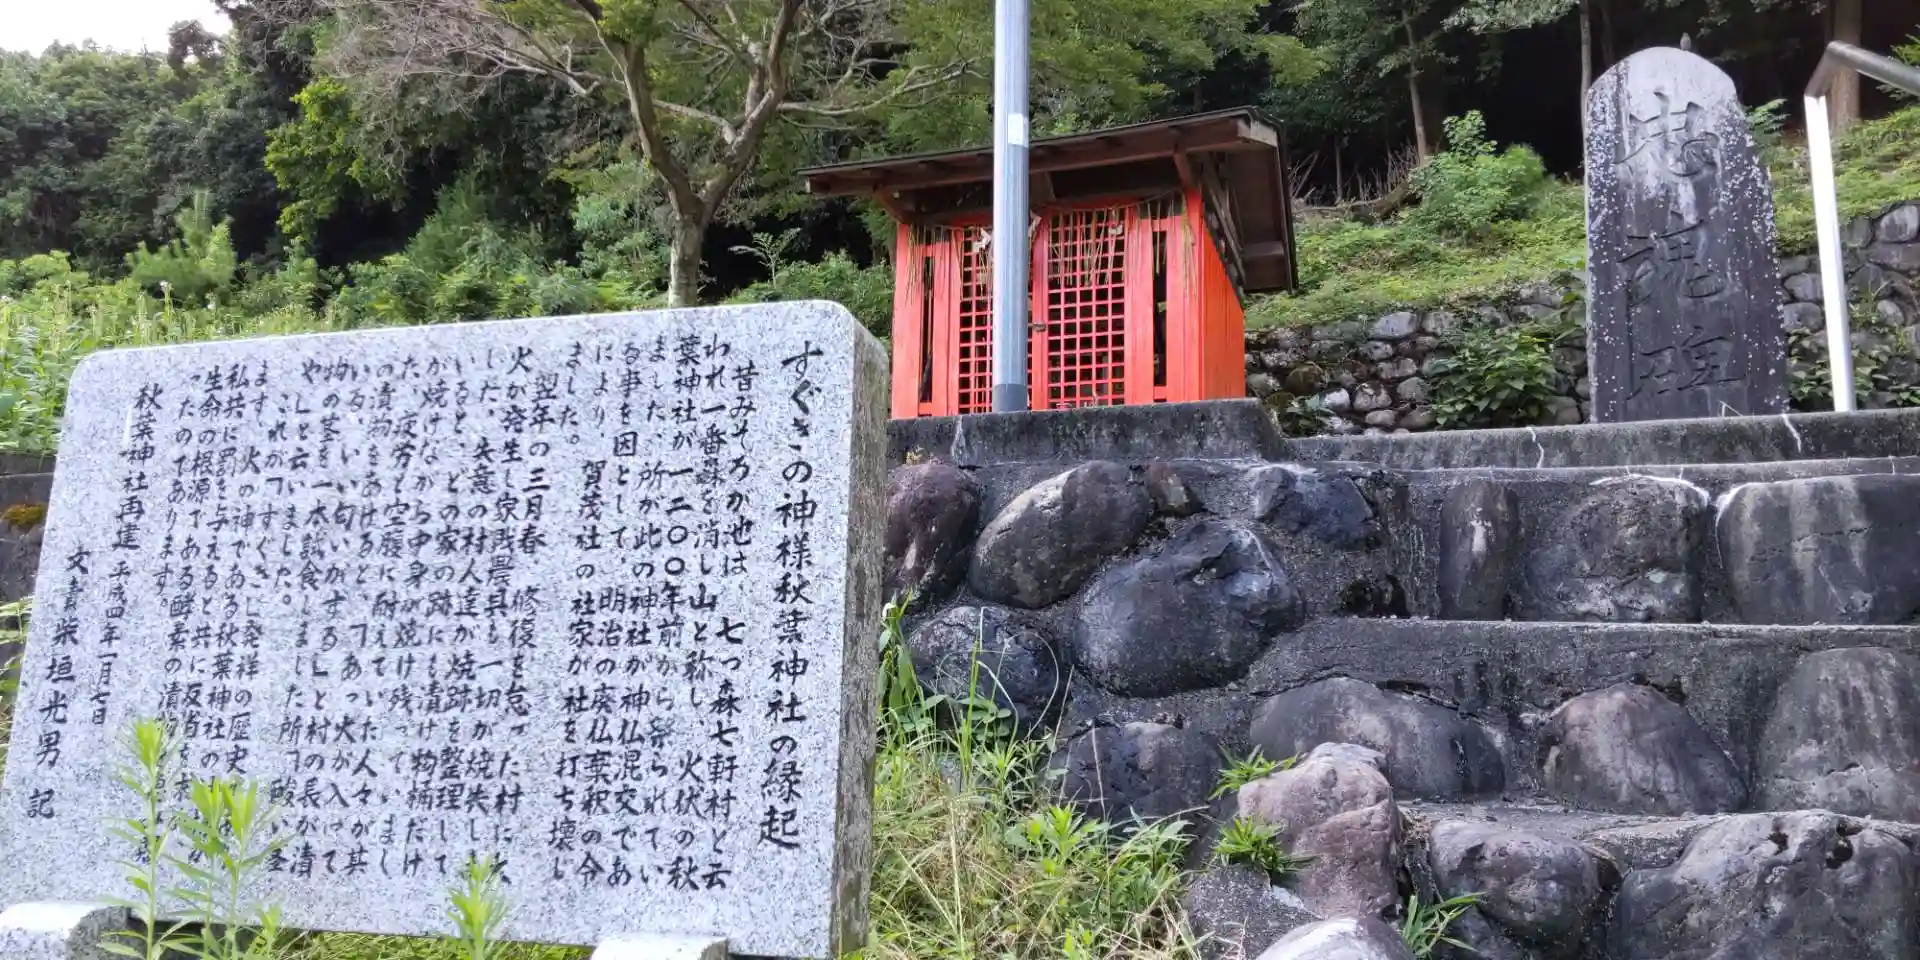 すぐきの神様秋葉神社の縁起
昔みぞろが池は、七つ森七軒村と云
われ一番森を消し山と称し、火伏の秋
葉神社が一二〇〇年前から祭られてい
ました、所が此の神社が神仏混交であ
る事を因として、明治の廃仏棄釈の令
により、賀茂社の社家が社を打ち壊し
ました。
翌年の三月春、修復を怠った村に大
火が発生し家財農具も一切が焼失しま
した、失意の村人達が焼跡を整理して
いると、どの家の跡にも漬け物桶だけ
が焼けながら中身が焼け残っていまし
た、疲労と空腹に耐えていた人々が其
の漬物をあけると、「あっ火が入って
いる、いい匂いがする」と村の長が漬
物の茎を一本試食しました所「酸い茎
や」と云いました。
これが「すぐき」発祥の歴史
ます、火の神である秋葉神社の
私共に罰を与えると共に反省を
生命の根源である酵素の漬物
ったのであります。
秋葉神社再建 平成四年一月七日
文責 柴垣光男 記
忠魂碑